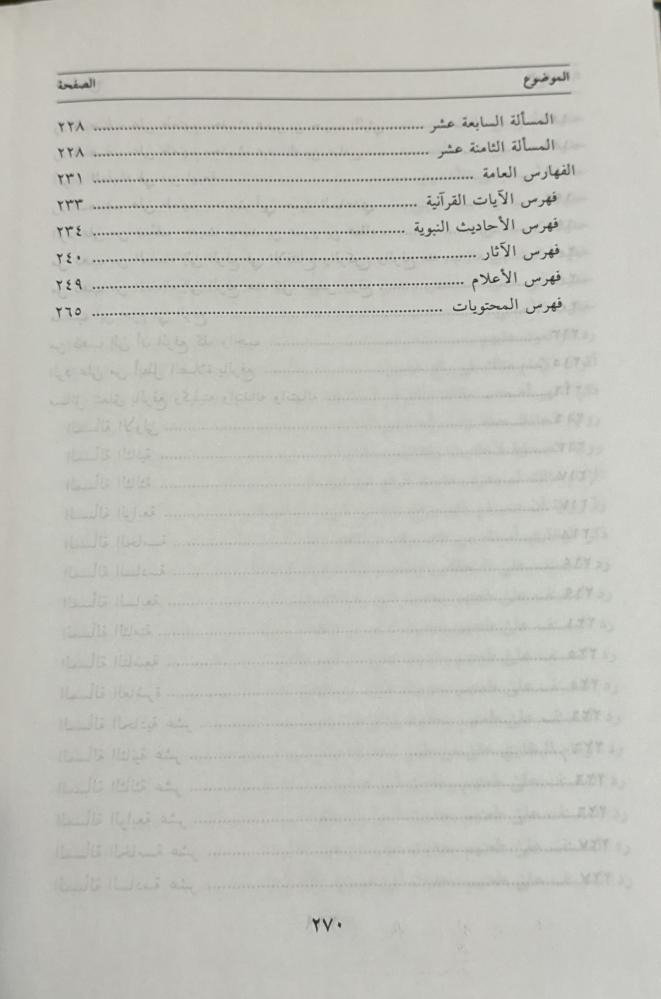 الموضوع الصفحة
المسألة السابعة عشر ................ ٢٢٨
المسألة الثامنة عشر ................ ٢٢٨
الفهارس العامة ................ ٢٣١
فهرس الآيات القرآنية ................ ٢٣٣
فهرس الأحاديث النبوية ................ ٢٣٤
فهرس الآثار ................ ٢٤٠
فهرس الأعلام ................ ٢٤٩
فهرس المحتويات ................ ٢٦٥
٢٧٠